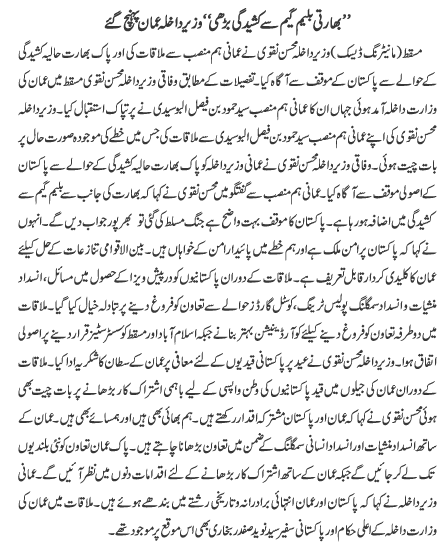 ’’بھارتی بلیم گیم سے کشیدگی بڑھی‘‘ وزیر داخلہ عمان پہنچ گئے
مسقط (مانیٹرنگ ڈیسک) وزیر داخلہ محسن نقوی نے عمانی ہم منصب سے ملاقات کی اور پاک بھارت حالیہ کشیدگی
کے حوالے سے پاکستان کے موقف سے آگاہ کیا۔ تفصیلات کے مطابق وفاقی وزیر داخلہ محسن نقوی مسقط میں عمان کی
وزارت داخلہ آمد ہوئی جہاں ان کا عمانی ہم منصب سید حمود بن فیصل البوسیدی نے پرتپاک استقبال کیا۔ وزیر داخلہ
محسن نقوی کی اپنے عمانی ہم منصب سید حمود بن فیصل البوسیدی سے ملاقات کی جس میں خطے کی موجودہ صورت حال پر
بات چیت ہوئی۔ وفاقی وزیر داخلہ محسن نقوی نے عمانی وزیر داخلہ کو پاک بھارت حالیہ کشیدگی کے حوالے سے پاکستان
کے اصولی موقف سے آگاہ کیا۔ عمانی ہم منصب سے گفتگو میں محسن نقوی نے کہا کہ بھارت کی جانب سے بلیم گیم سے
کشیدگی میں اضافہ ہو رہا ہے۔ پاکستان کا موقف بہت واضح ہے جنگ مسلط کی گئی تو بھرپور جواب دیں گے۔ انہوں
نے کہا کہ پاکستان پرامن ملک ہے اور ہم خطے میں پائیدار امن کے خواہاں ہیں۔ بین الاقوامی تنازعات کے حل کیلئے
عمان کا کلیدی کردار قابل تعریف ہے۔ ملاقات کے دوران پاکستانیوں کو درپیش ویزا کے حصول میں مسائل، انسداد
منشیات و انسداد سمگلنگ، پولیس ٹریننگ، کوسٹل گارڈز حوالے سے تعاون کو فروغ دینے پر تبادلہ خیال کیا گیا۔ ملاقات
میں دوطرفہ تعاون کو فروغ دینے کیلئے کوآرڈینیشن بہتر بنانے جبکہ اسلام آباد اور مسقط کو سسٹر سٹیز قرار دینے پر اصولی
اتفاق ہوا۔ وزیر داخلہ محسن نقوی نے عید پر پاکستانی قیدیوں کے لئے معافی پر عمان کے سلطان کا شکریہ ادا کیا۔ ملاقات
کے دوران عمان کی جیلوں میں قید پاکستانیوں کی وطن واپسی کے لیے باہمی اشتراک کار بڑھانے پر بات چیت بھی
ہوئی محسن نقوی نے کہا کہ عمان اور پاکستان مشترکہ اقدار رکھتے ہیں۔ ہم بھائی بھی ہیں اور ہمسائے بھی ہیں۔ عمان کے
ساتھ انسداد منشیات اور انسداد انسانی سمگلنگ کے ضمن میں تعاون بڑھانا چاہتے ہیں۔ پاک عمان تعاون کو نئی بلندیوں
تک لے کر جائیں گے جبکہ عمان کے ساتھ اشتراک کار بڑھانے کے لئے اقدامات دنوں میں نظر آئیں گے۔ عمانی
وزیر داخلہ نے کہا کہ پاکستان اور عمان انتہائی برادرانہ و تاریخی رشتے میں بندھے ہوئے ہیں۔ ملاقات میں عمان کی
وزارت داخلہ کے اعلی حکام اور پاکستانی سفیر سید نوید صفدر بخاری بھی اس موقع پر موجود تھے۔